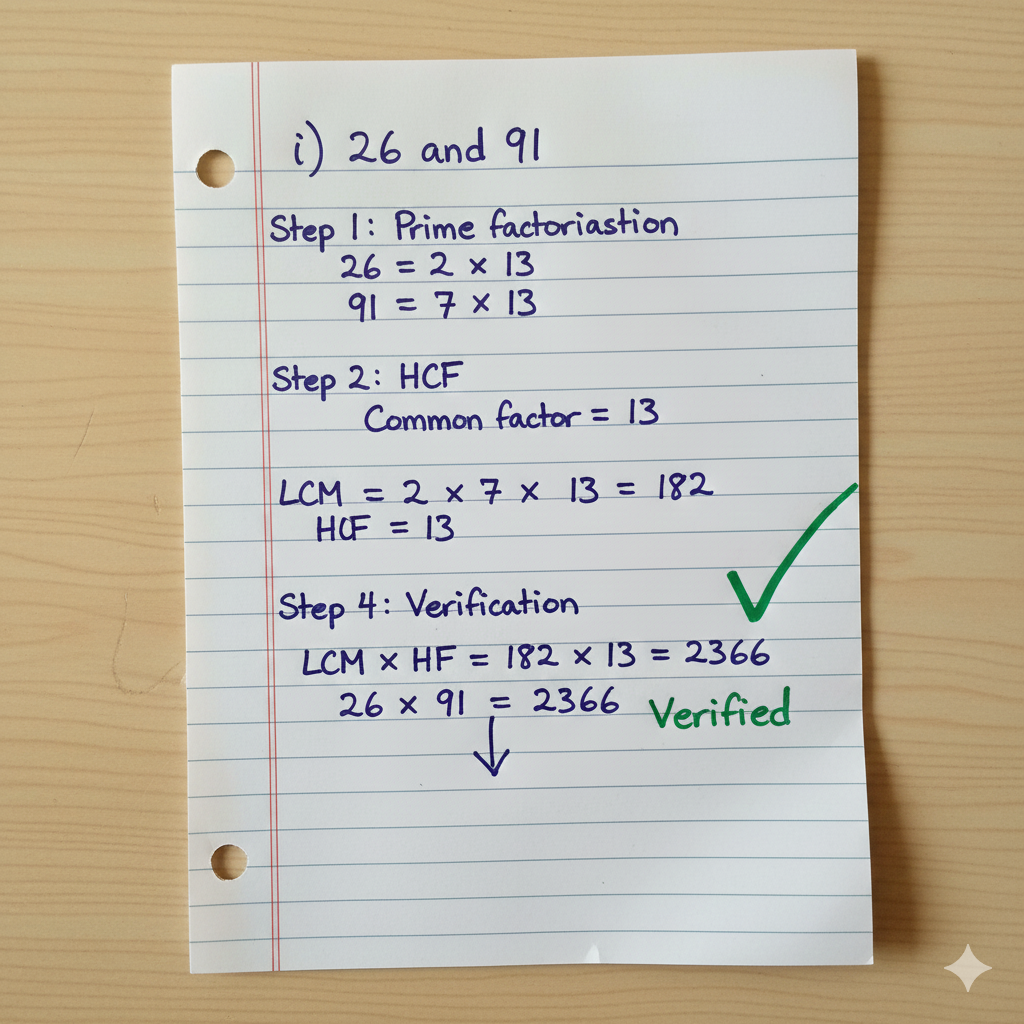 i) 26 and 91
Step 1: Prime factoriastion
26 = 2 × 13
91 = 7 × 13
Step 2: HCF
Common factor = 13
LCM = 2 × 7 × 13 = 182
HCF = 13
Step 4: Verification
LCM × HF = 182 × 13 = 2366
26 × 91 = 2366 Verified